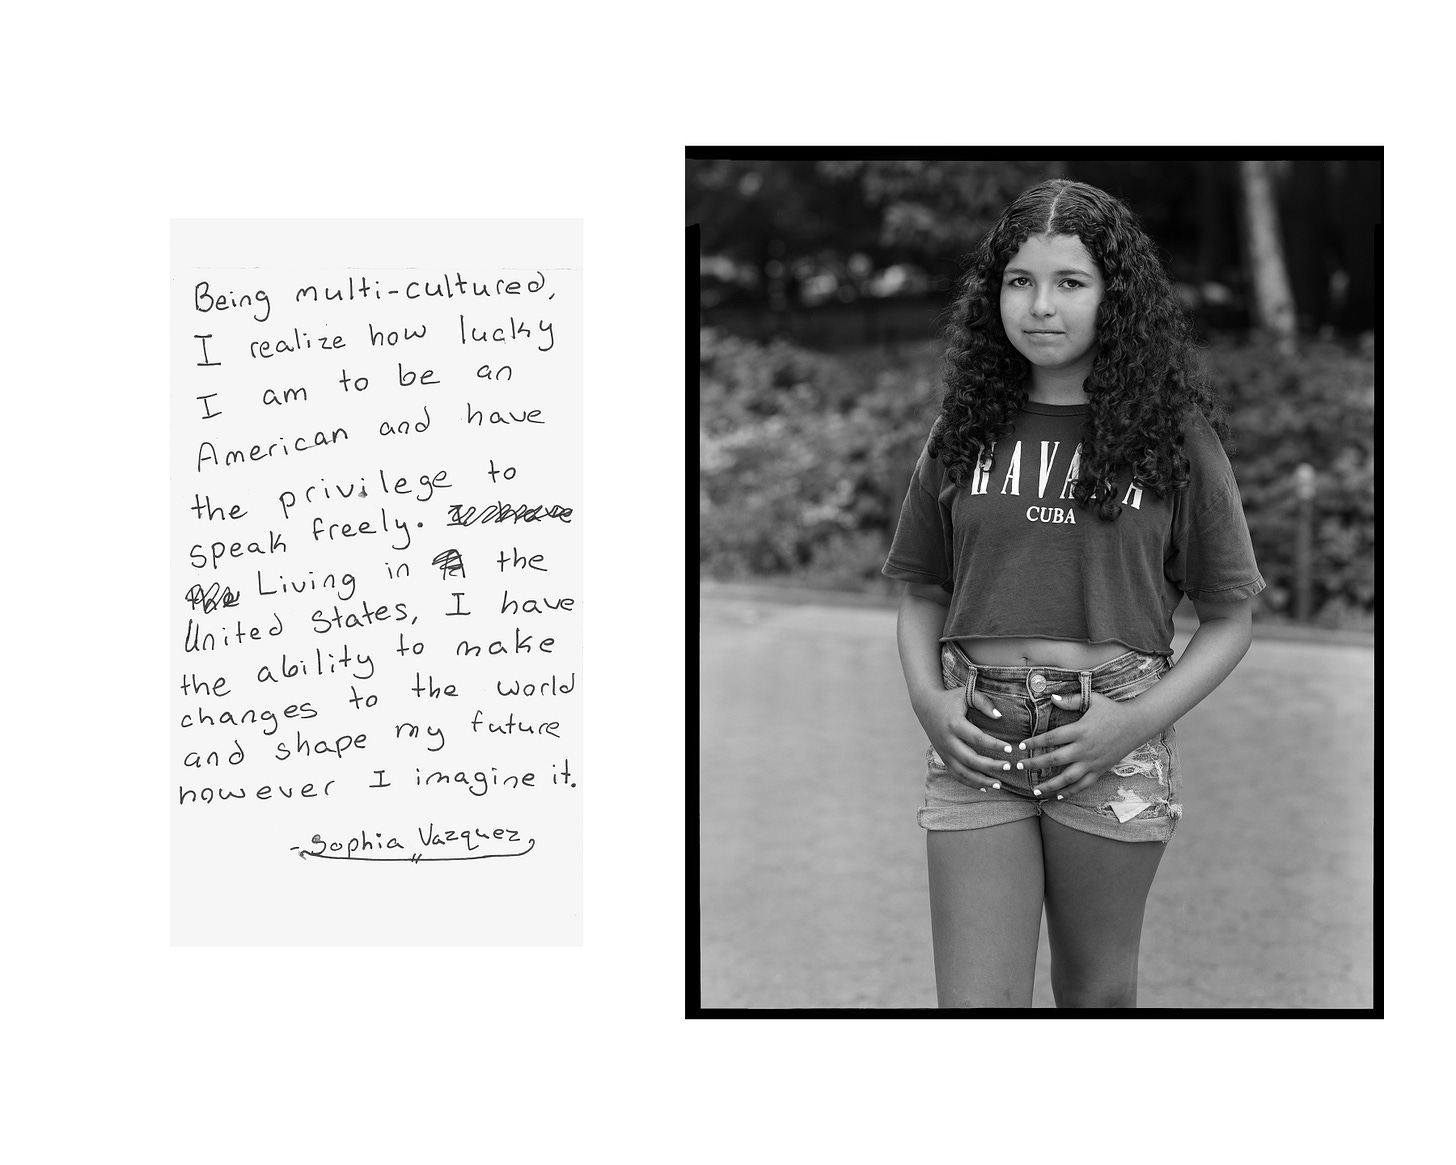 Being multi-cultured,
I realize how lucky
I am to be an
American and have
the privilege to
speak freely.
Living in the
United States, I have
the ability to make
changes to the world
and shape my future
however I imagine it.
-Sophia Vazquez
HAVANA
CUBA